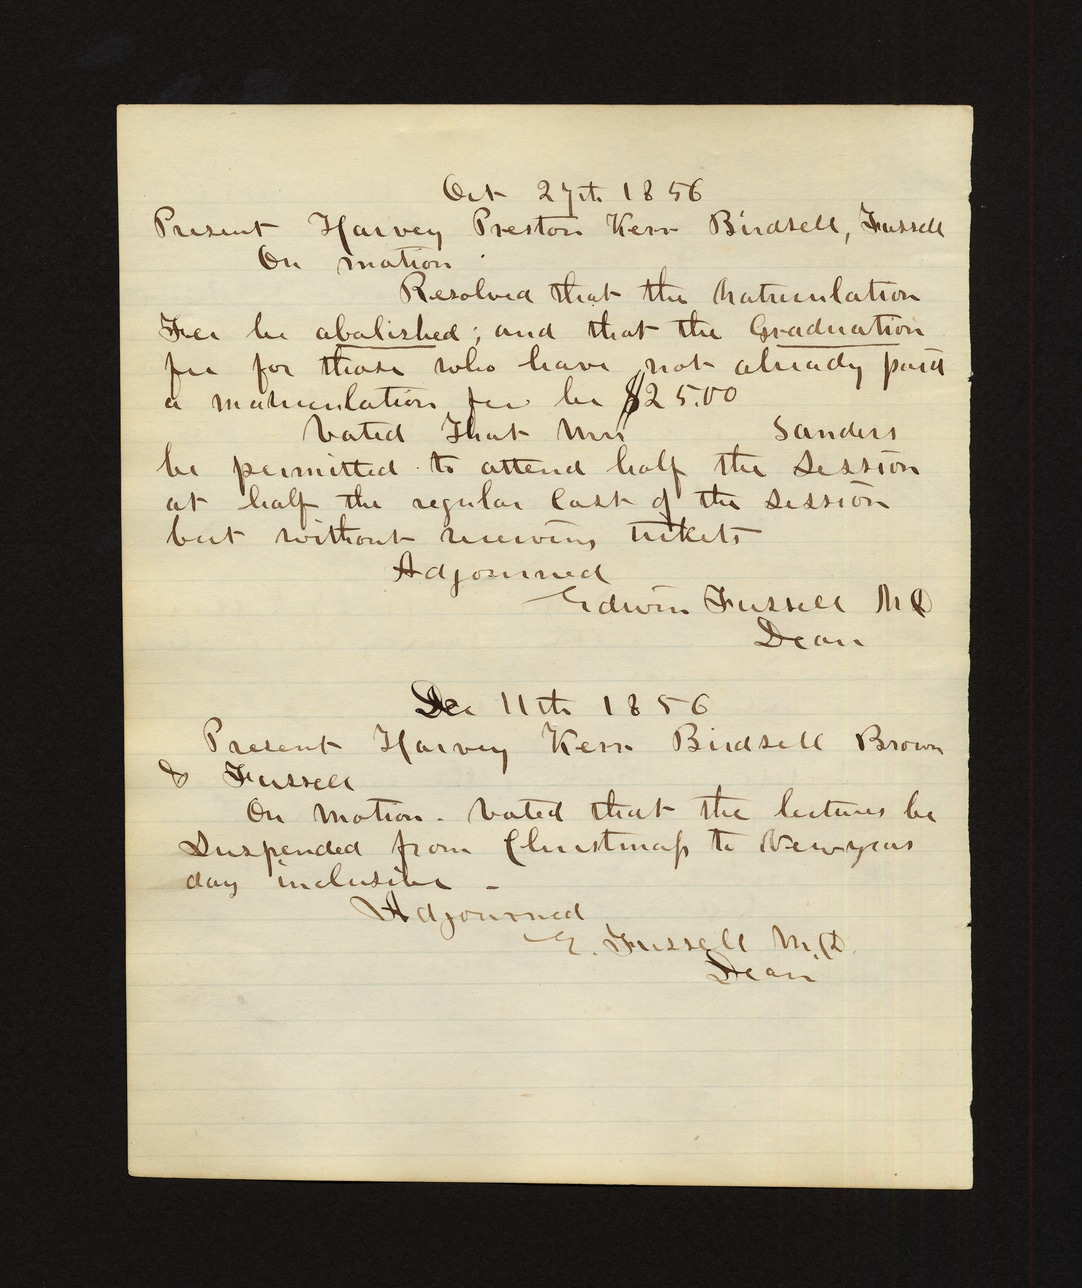 Oct 27th 1856
Present Harvey Preston Kerr Birdsell, Fussell
On motion
Resolved that the Matriculation
Fee be abolished; and that the Graduation
fee for those who have not already paid
a matriculation fee be $25.00
Voted That Mrs Sanders
be permitted to attend half the Session
at half the regular Cost of the Session
but without receiving tickets
Adjourned
Edwin Fussell MD
Dean
Dec 11th 1856
Present Harvey Kerr Birdsell Brown
& Fussell
On Motion - Voted that the lectures be
Suspended from Christmass to Newyears
day inclusive -
Adjourned
E. Fussell M.D.
Dean